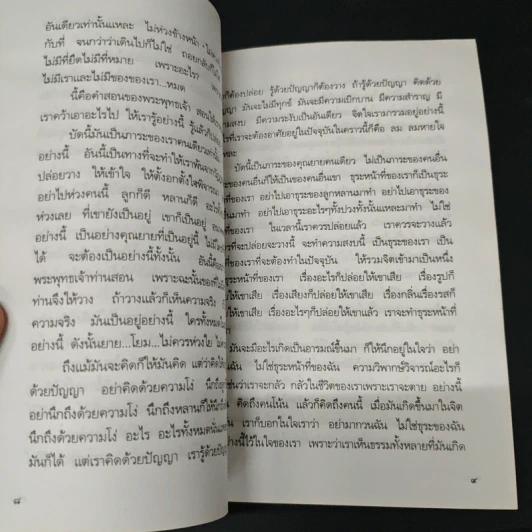 อันเดียวเท่านั้นแหละ ไม่ห่วงข้างหน้า
กับที่ จนกว่าว่าเดินไปก็ไม่ใช่ ถอยกลับก็ไม่
ไม่มีที่ยึดไม่มีที่หมาย เพราะอะไร?
ไม่มีเราและไม่มีของของเรา...หมด
นี้คือคำสอนของพระพุทธเจ้า สอนให้
เราคว้าเอาอะไรไป ให้เรารู้อย่างนี้ รู้แล้วก็
บัดนี้มันเป็นภาระของเราคนเดียวเท่านั้น
อย่างนี้ อันนี้เป็นทางที่จะทำให้เราพ้นจาก
ปล่อยวาง ให้เข้าใจ ให้ตั้งอกตั้งใจพิจารณา
อย่าไปห่วงคนนี้ ลูกก็ดี หลานก็ดี
ห่วงเลย ที่เขายังเป็นอยู่ เขาก็เป็นอยู่
อย่างนี้ เป็นอย่างคุณยายที่เป็นอยู่นี้
ได้ จะต้องเป็นอย่างนี้ทั้งนั้น อันนี้คือ
พระพุทธเจ้าท่านสอน เพราะฉะนั้นของ
ท่านจึงให้วาง ถ้าวางแล้วก็เห็นความจริง
ความจริง มันเป็นอยู่อย่างนี้ ใครทั้งหมด
อย่างนี้ ดังนั้นยาย...โยม...ไม่ควรห่วงใย
ถึงแม้มันจะคิดก็ให้มันคิด แต่ว่าคิด
ด้วยปัญญา อย่าคิดด้วยความโง่ นึกถึงลูก
อย่านึกถึงด้วยความโง่ นึกถึงหลานก็ให้นึก
นึกถึงด้วยความโง่ อะไร อะไรทั้งหมดนั้น
มันก็ได้ แต่เราคิดด้วยปัญญา เรารู้ด้วยปัญญา
๘
ก็ต้องปล่อย รู้ด้วยปัญญาก็ต้องวาง ถ้ารู้ด้วยปัญญา คิดด้วย
ปัญญา มันจะไม่มีทุกข์ มันจะมีความเบิกบาน มีความสำราญ มี
ความสงบ มีความระงับเป็นอันเดียว จิตใจเรามารวมอยู่อย่างนี้
ที่เราจะต้องอาศัยอยู่ในปัจจุบันในคราวนี้ก็คือ ลม ลมหายใจ
แหละ
บัดนี้เป็นภาระของคุณยายคนเดียว ไม่เป็นภาระของคนอื่น
ของคนอื่นก็ให้เป็นของคนอื่นเขา ธุระหน้าที่ของเราก็เป็นธุระ
หน้าที่ของเรา อย่าไปเอาธุระของลูกหลานมาทำ อย่าไปเอาธุระของ
มาทำ อย่าไปเอาธุระอะไรๆทั้งปวงทั้งนั้นแหละมาทำ ไม่ใช่
ของเรา ในเวลานี้เราควรปล่อยแล้ว เราควรจะวางแล้ว
ที่จะปล่อยจะวางนี้ จะทำความสงบนี้ เป็นธุระของเรา เป็น
ของเราที่จะต้องทำในปัจจุบัน ให้รวมจิตเข้ามาเป็นหนึ่ง
ธุระหน้าที่ของเรา เรื่องอะไรก็ปล่อยให้เขาเสีย เรื่องรูปก็
ให้เขาเสีย เรื่องเสียงก็ปล่อยให้เขาเสีย เรื่องกลิ่นเรื่องรสก็
ให้เขาเสีย เรื่องอะไรๆก็ปล่อยให้เขาแล้ว เราจะทำธุระหน้าที่
มันจะมีอะไรเกิดเป็นอารมณ์ขึ้นมา ก็ให้นึกอยู่ในใจว่า อย่า
ฉัน ไม่ใช่ธุระหน้าที่ของฉัน ความวิพากษ์วิจารณ์อะไรก็
เช่นว่าเราจะกลัว กลัวในชีวิตของเราเพราะเราจะตาย อย่างนี้
คิดถึงคนโน้น แล้วก็คิดถึงคนนี้ เมื่อมันเกิดขึ้นมาในจิต
เราก็บอกในใจเราว่า อย่ามากวนฉัน ไม่ใช่ธุระของฉัน
อย่างนี้ไว้ในใจของเรา เพราะว่าเราเห็นธรรมทั้งหลายที่มันเกิด
๙